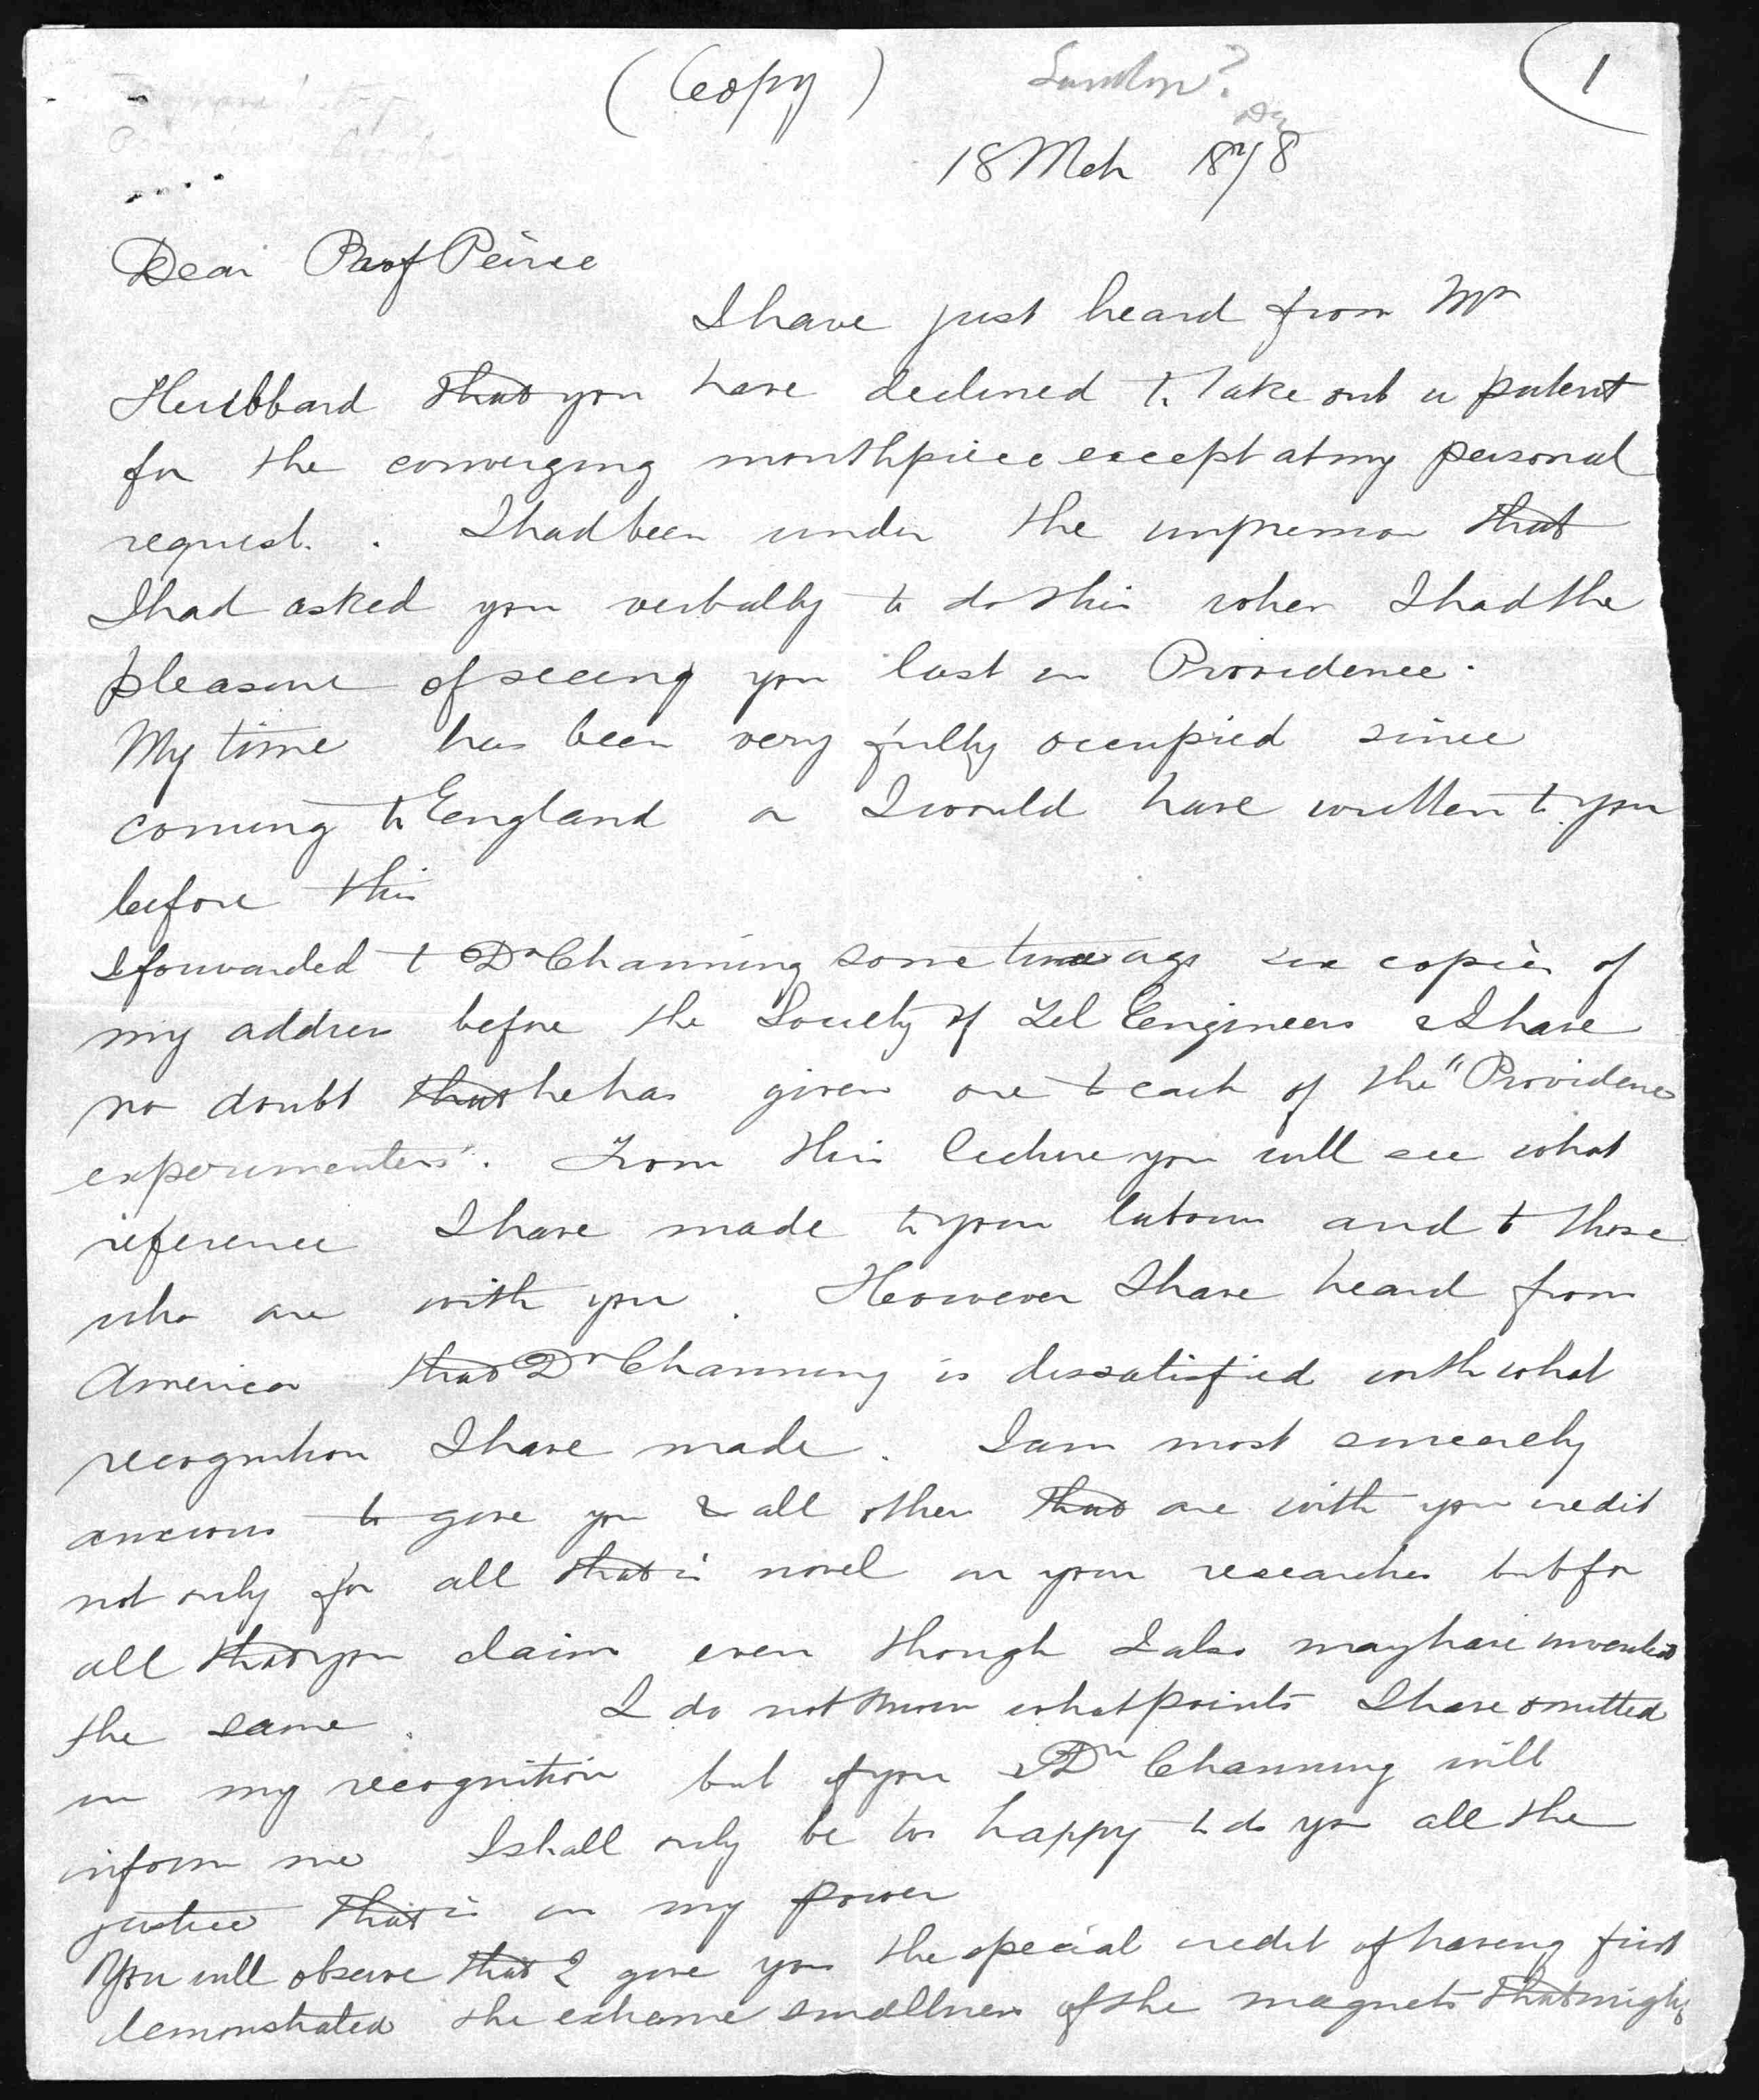 (Copy)
London?
1
18 Mch 1878
Dear Prof Peirce
I have just heard from Mr
Hubbard that you have declined to take out a patent
for the converging mouthpiece except at my personal
request. I had been under the impression that
I had asked you verbally to do this when I had the
pleasure of seeing you last in Providence.
My time has been very fully occupied since
coming to England or I would have written to you
before this
I forwarded to Dr Channing some time ago six copies of
my address before the Society of Tel Engineers & I have
no doubt that he has given one to each of the "Providence
experimenters". From this lecture you will see what
reference I have made to your labours and to those
who are with you. However I have heard from
America that Dr Channing is dissatisfied with what
recognition I have made. I am most sincerely
anxious to give you & all other that are with you credit
not only for all that is novel in your researches but for
all that you claim even though I also may have invented
the same. I do not know what points I have omitted
in my recognition but if you & Dr Channing will
inform me I shall only be too happy to do you all the
justice that is in my power
You will observe that I give you the special credit of having first
demonstrated the extreme smallness of the magnets that might